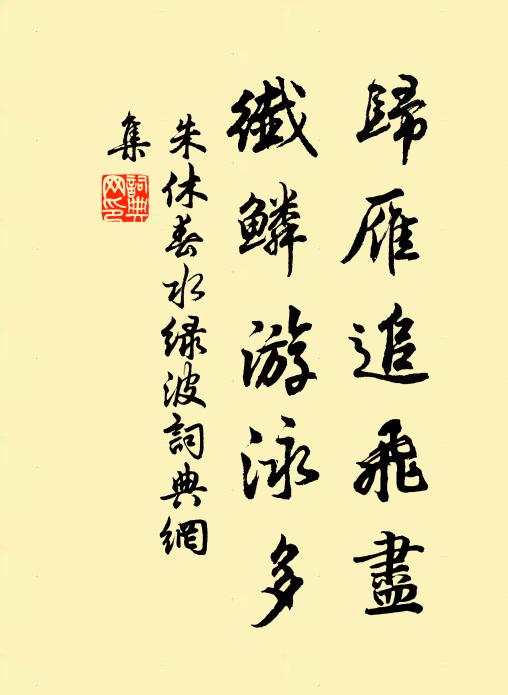 歸雁追飛盡
纖鱗游泳多
朱休春水綠波詞典網
集
詞典網印